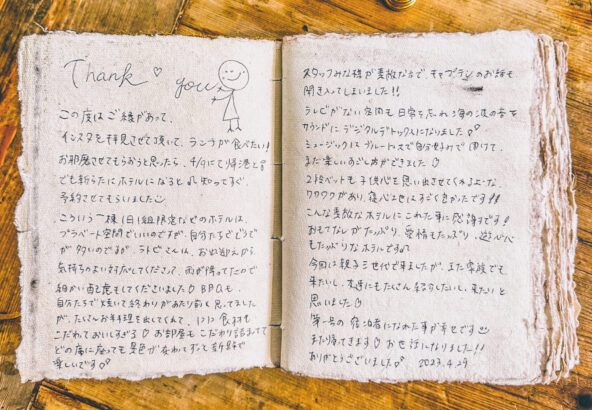 Thank ♡ you
この度はご縁があって、
インスタを拝見させて頂いて、ランチが食べたい!
お邪魔させてもらおうと思ったら、4/9にて
でも新らたにホテルになると知ってすぐ、
予約させてもらいました
こういう一棟1日1組限定などのホテルは、
プラベート空間でいいのですが、自分たちでどうぞ
が多いのですが、さんは、お出迎えから
気持ちのよい対応してくださって、雨が降ってたので
細かい配慮もしてくださいました♡ BBQも、
自分たちで焼いて終わりがあたり前と思ってました
が、たくさんお料理も出してくれて、1つ1つ食材も
こだわておいしすぎる♡ お部屋もこだわり詰まってて
どの席に座っても景色が変わてずっと新鮮で
楽しいです
スタッフみな様が素敵な方で、キャプテンのお話も
聞き入ってしまいました!!
テレビがない空間も日常を忘れ海の波の音を
サウンドにデジタルデトックスになりました
ミュージックにブルートゥスで自分好みで聞けて、
また楽しいすごし方ができました♡
2段ベットも子供心を思い出させてくれるよーな、
ワクワクがあり、寝心地はすごく良かったです!!
こんな素敵なホテルにこれた事に感謝です!
おもてなしがたっぷり、愛情もたっぷり、遊び心
もたっぷりなホテルですね
今回は親子三世代で来ましたが、また家族でも
来たいし、友達にもたくさん紹介したいし、来たいと
思いました♡
第一号の宿泊者になれた事が幸せです
また帰ってきます♡ お世話になりました!!
ありがとうございました 2023.4.29